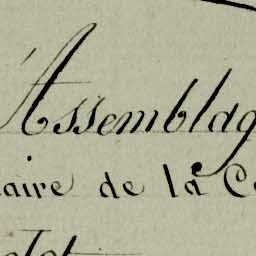 Assemblag
aire de la C